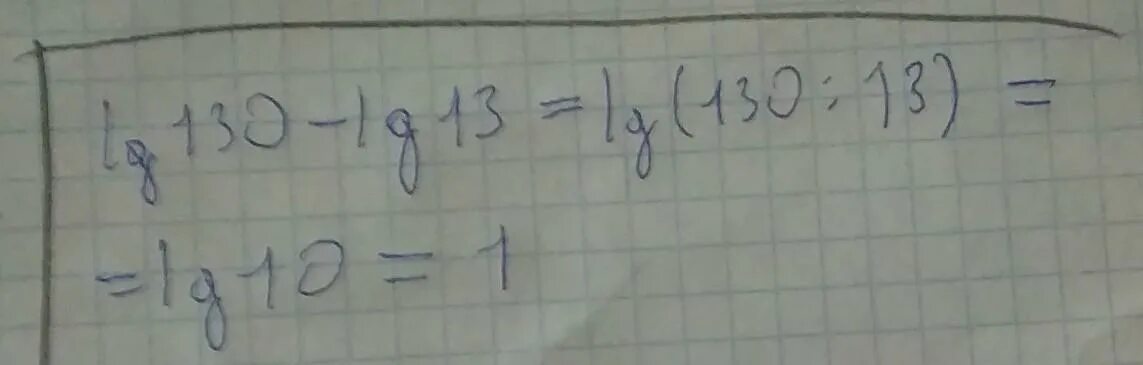 lg 130 - lg 13 = lg (130 : 13) =
= lg 10 = 1